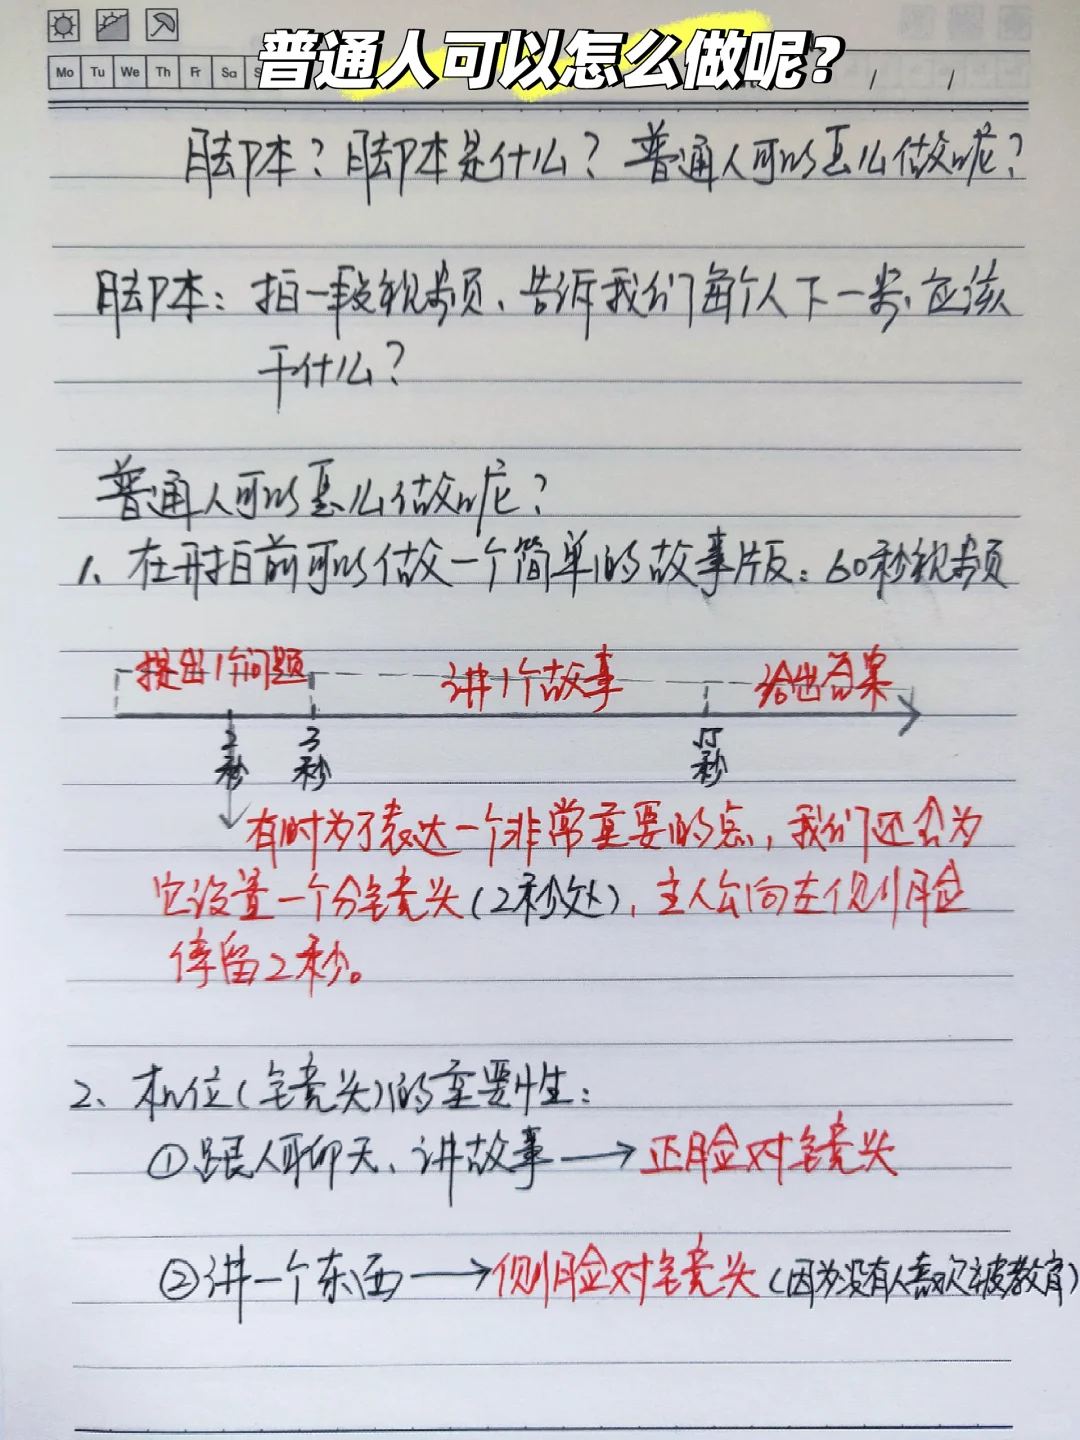 普通人可以怎么做呢?
Mo Tu We Th Fr Sa
脚本?脚本是什么?普通人可以怎么做呢?
脚本:拍一段视频、告诉我们每个人下一步应该
干什么?
普通人可以怎么做呢?
1、在开拍前可以做一个简单的故事版:60秒视频
提出1个问题 讲1个故事 给出答案
2秒 3秒 15秒
有时为了表达一个非常重要的点,我们还会为
它设置一个分镜头(2秒处),主人公向左侧脸
停留2秒。
2、机位(镜头)的重要性:
①跟人聊天、讲故事→正脸对镜头
②讲一个东西→侧脸对镜头(因为没有人喜欢被教育)